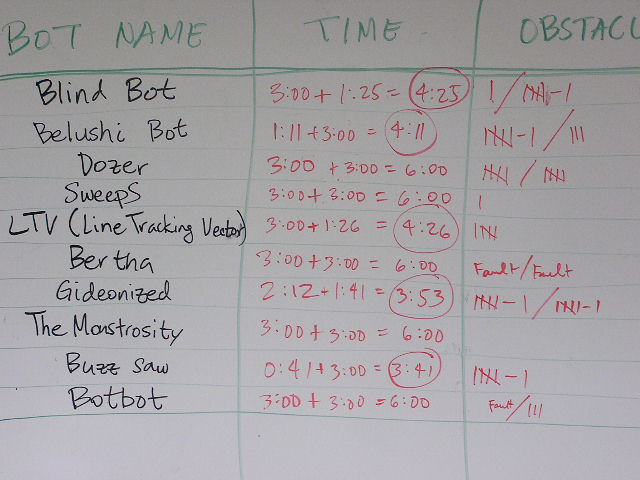 BOT NAME TIME OBSTACL
Blind Bot 3:00 + 1:25 = 4:25 1 / 𝍸-1
Belushi Bot 1:11 + 3:00 = 4:11 𝍸-1 / III
Dozer 3:00 + 3:00 = 6:00
SweepS 3:00 + 3:00 = 6:00 1
LTV (Line Tracking Vector) 3:00 + 1:26 = 4:26
Bertha 3:00 + 3:00 = 6:00 Fault/Fault
Gideonized 2:12 + 1:41 = 3:53 𝍸-1 / 𝍸-1
The Monstrosity 3:00 + 3:00 = 6:00
Buzz saw 0:41 + 3:00 = 3:41 𝍸-1
Botbot 3:00 + 3:00 = 6:00 Fault/III